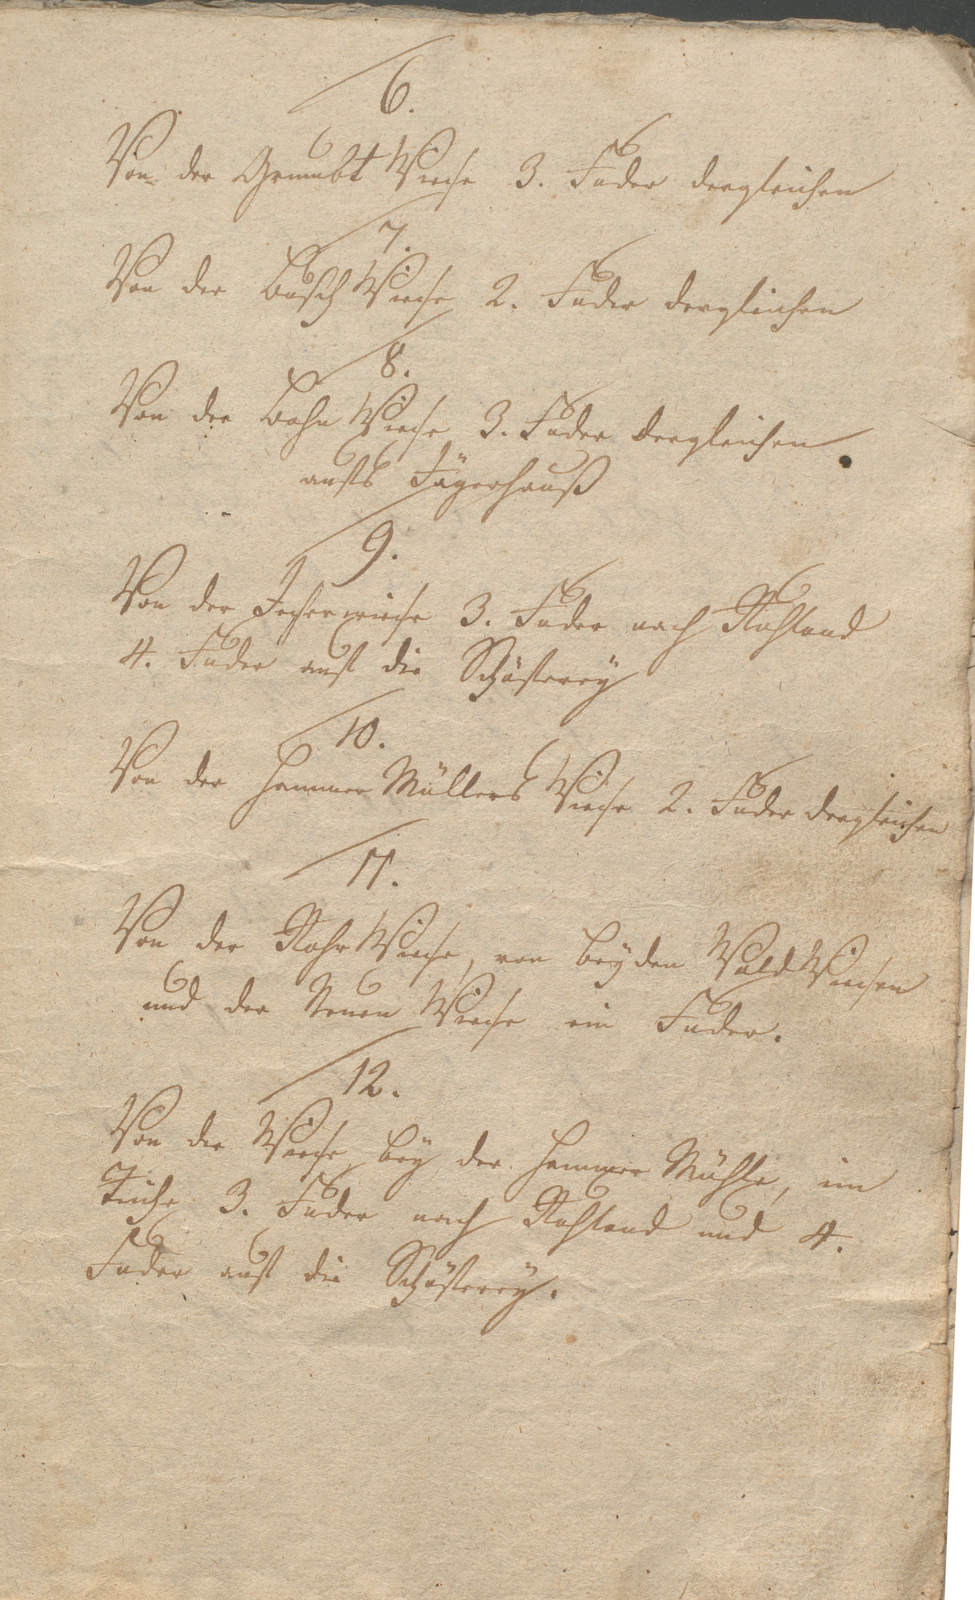 6.
Von der Grundt Wiese 3. Fuder dergleichen
7.
Von der Busch Wiese 2. Fuder dergleichen
8.
Von der Bohn Wiese 3. Fuder dergleichen
aufs Jägerhauß
9.
Von der wiese 3. Fuder nach Ruhland
4. Fuder auf die Schäferey
10.
Von der Hammer Müllers Wiese 2. Fuder dergleichen
11.
Von der Rohr Wiese, von beyden Wald Wiesen
und der Neuen Wiese ein Fuder.
12.
Von der Wiese bey der Hammer Mühle, im
3. Fuder nach Ruhland und 4.
Fuder auf die Schäferey.